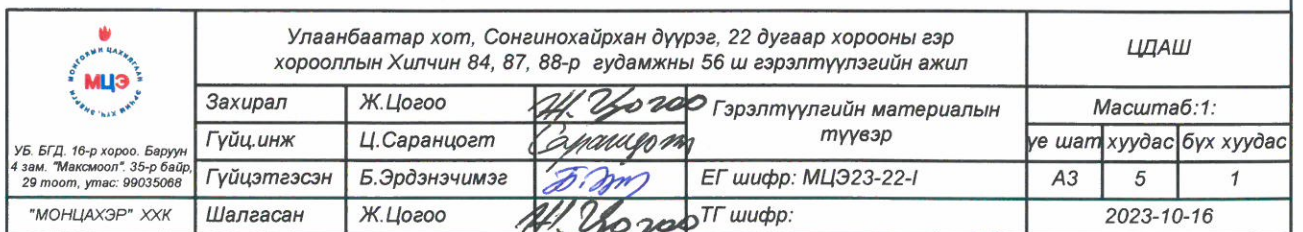 МОНГОЛЫН ЦАХИЛГААН ЭРЧИМ ХҮЧ, ЭНЕРГИ
МЦЭ
УБ. БГД. 16-р хороо. Баруун
4 зам. "Максмоол". 35-р байр,
29 тоот, утас: 99035068
"МОНЦАХЭР" ХХК
Улаанбаатар хот, Сонгинохайрхан дүүрэг, 22 дугаар хорооны гэр
хорооллын Хилчин 84, 87, 88-р гудамжны 56 ш гэрэлтүүлэгийн ажил
ЦДАШ
Захирал Ж.Цогоо Ж. Цогоо
Гүйц.инж Ц.Саранцогт Саранцогт
Гүйцэтгэсэн Б.Эрдэнэчимэг
Шалгасан Ж.Цогоо Ж. Цогоо
Гэрэлтүүлгийн материалын
түүвэр
ЕГ шифр: МЦЭ23-22-I
ТГ шифр:
Масштаб:1:
үе шат хуудас бүх хуудас
А3 5 1
2023-10-16